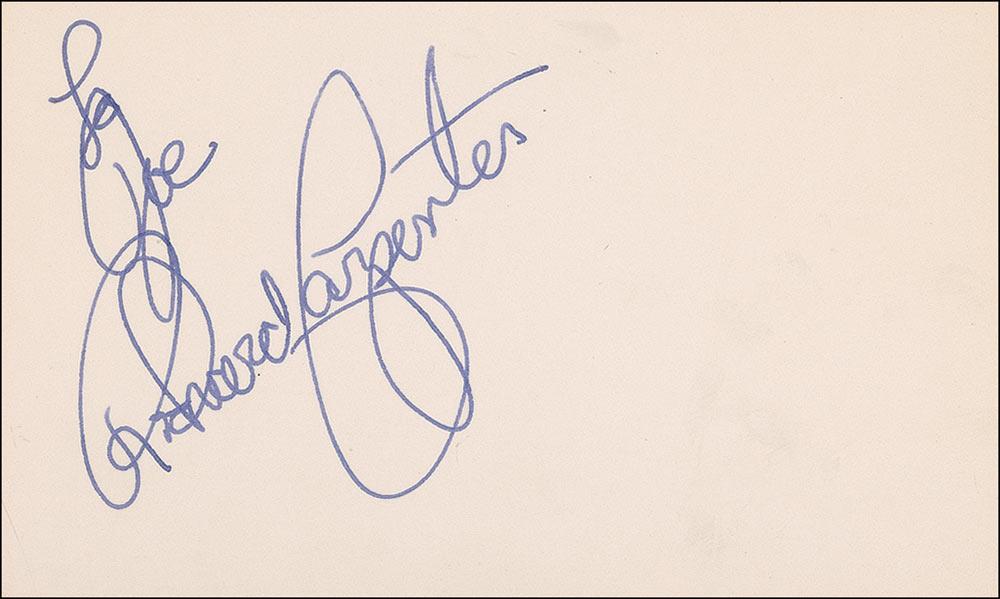 To
Joe
Richard Carpenter